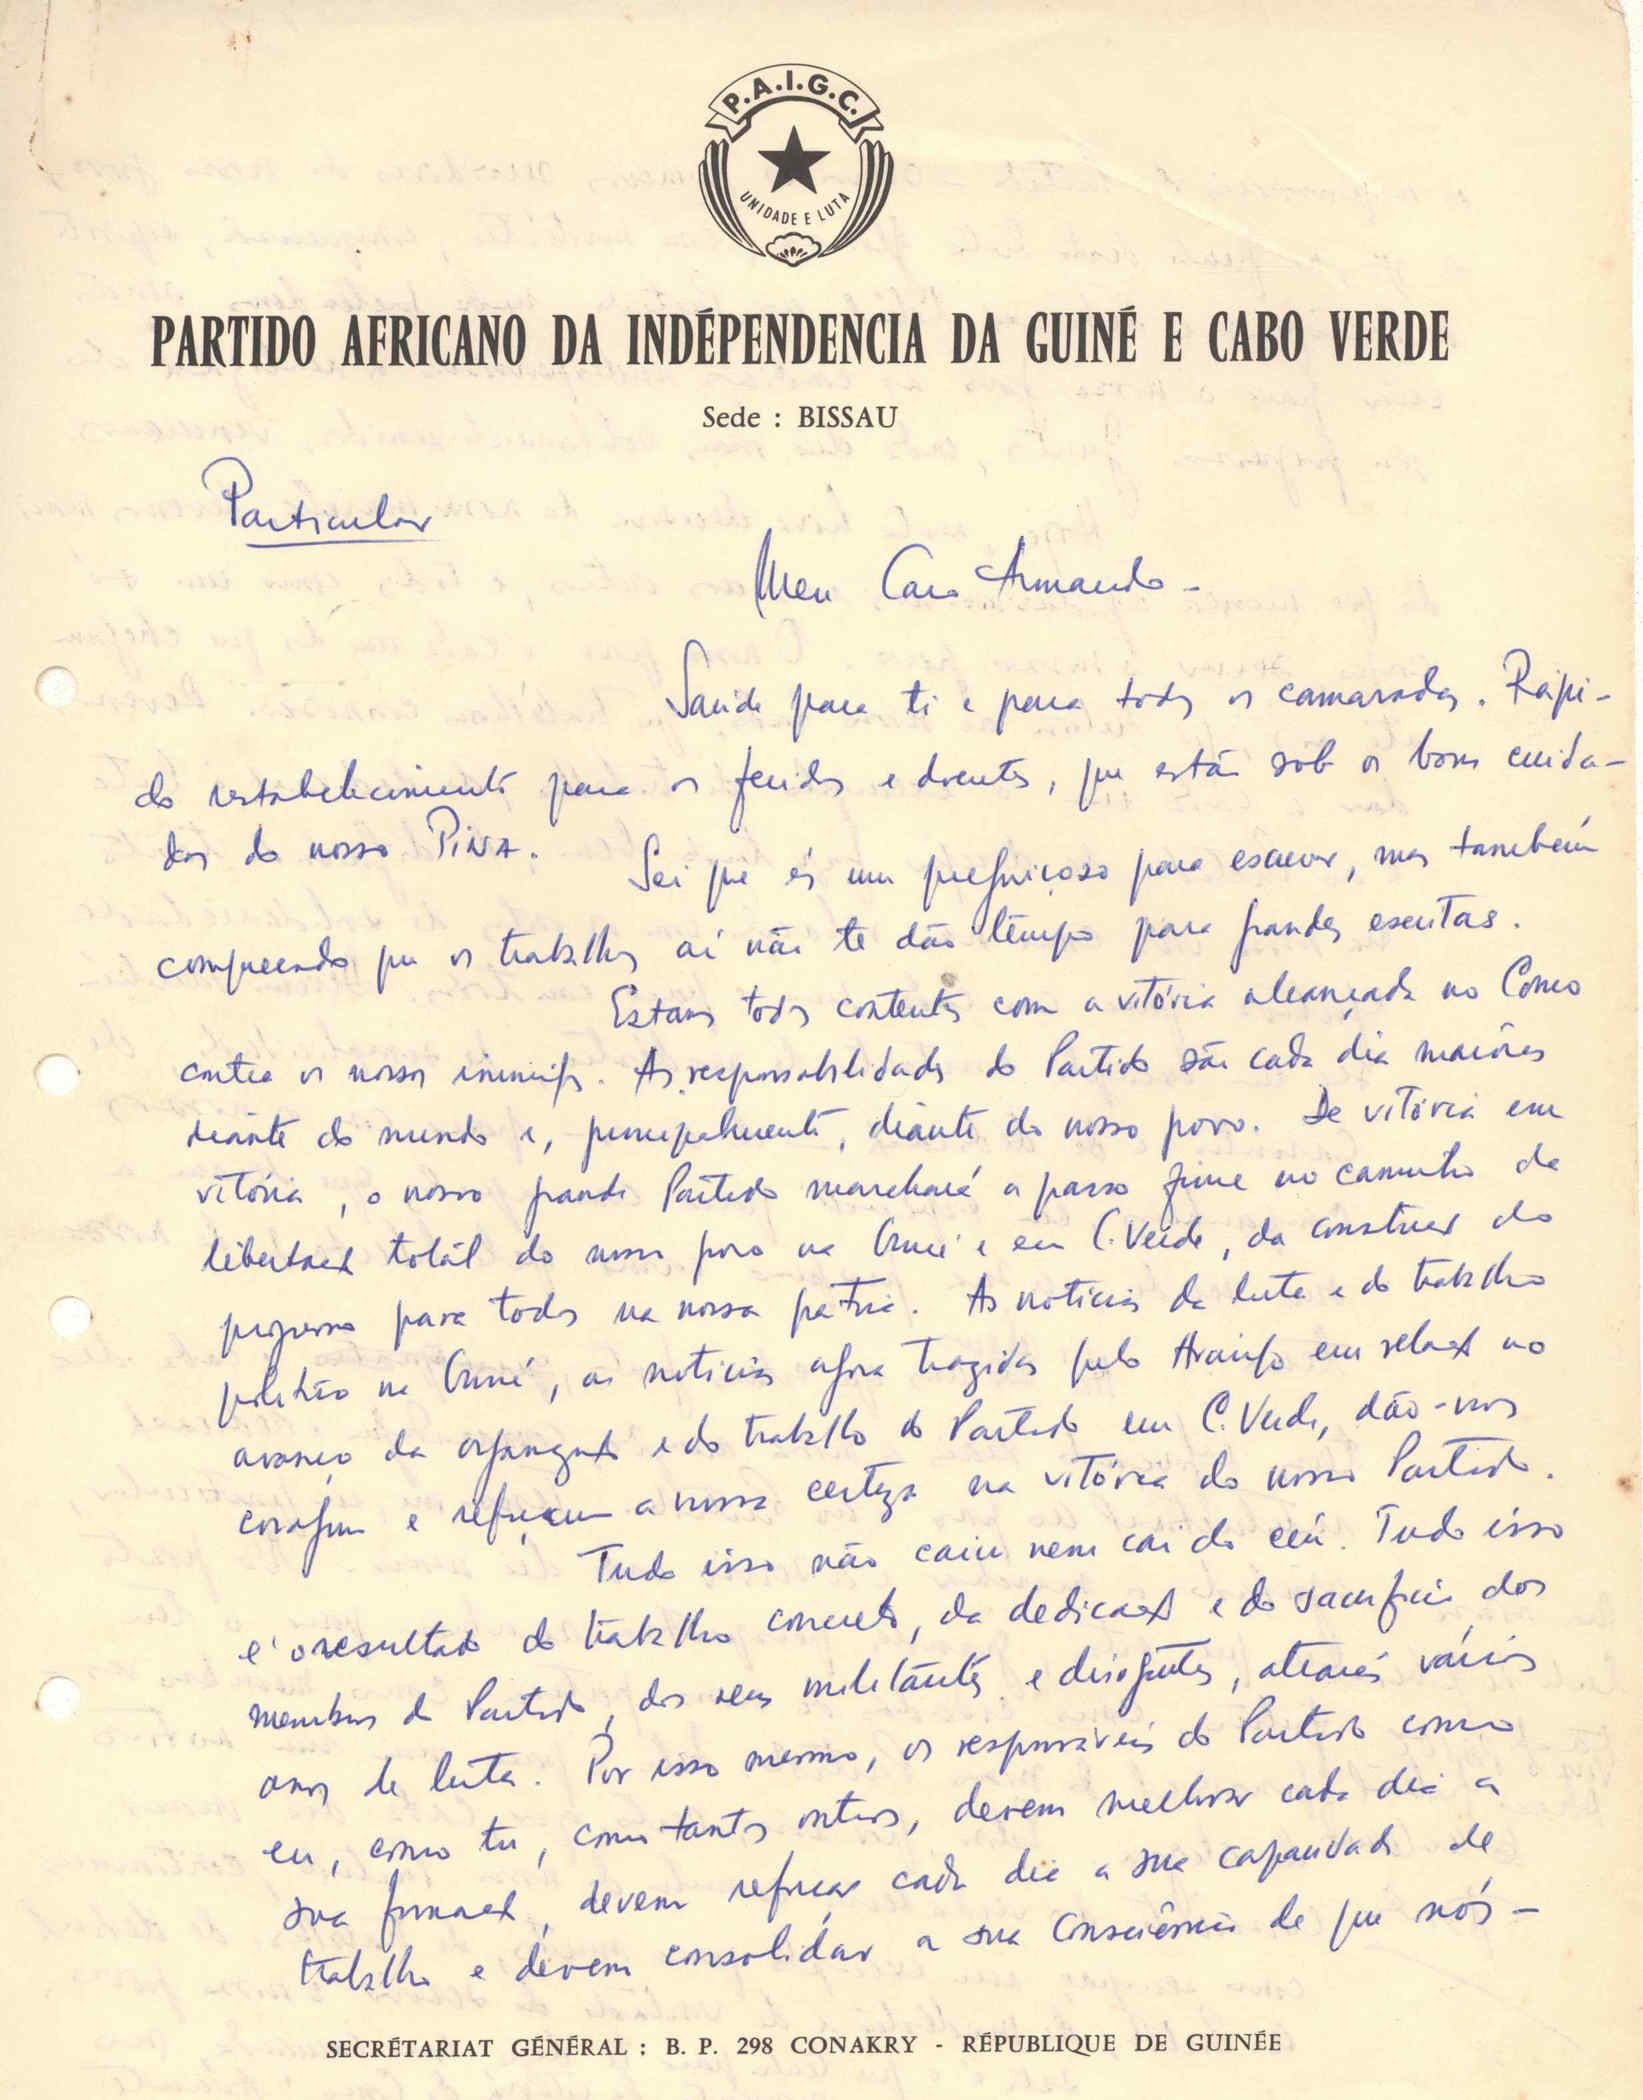 P.A.I.G.C.
UNIDADE E LUTA
PARTIDO AFRICANO DA INDÉPENDENCIA DA GUINÉ E CABO VERDE
Sede : BISSAU
Particular
Meu Caro Armando -
Saúde para ti e para todos os camaradas. Rápi-
do restabelecimento para os feridos e doentes, que estão sob os bons cuida-
dos do nosso PINA.
Sei que és um preguiçoso para escrever, mas também
compreendo que os trabalhos aí não te dão tempo para grandes escritas.
Estamos todos contentes com a vitória alcançada no Como
contra os nossos inimigos. As responsabilidades do Partido são cada dia maiores
diante do mundo e, principalmente, diante do nosso povo. De vitória em
vitória, o nosso grande Partido marchará a passo firme no caminho da
libertação total do nosso povo na Guiné e em C. Verde, da construção do
progresso para todos na nossa pátria. As notícias da luta e do trabalho
político na Guiné, as notícias agora trazidas pelo Araújo em relação ao
avanço da organização e do trabalho do Partido em C. Verde, dão-nos
coragem e reforçam a nossa certeza na vitória do nosso Partido.
Tudo isso não caiu nem cai do céu. Tudo isso
é o resultado do trabalho concreto, da dedicação e do sacrifício dos
membros do Partido, dos seus militantes e dirigentes, através vários
anos de luta. Por isso mesmo, os responsáveis do Partido como
eu, como tu, como tantos outros, devem melhorar cada dia a
sua formação, devem reforçar cada dia a sua capacidade de
trabalho e devem consolidar a sua consciência de que nós -
SECRÉTARIAT GÉNÉRAL : B. P. 298 CONAKRY - RÉPUBLIQUE DE GUINÉE